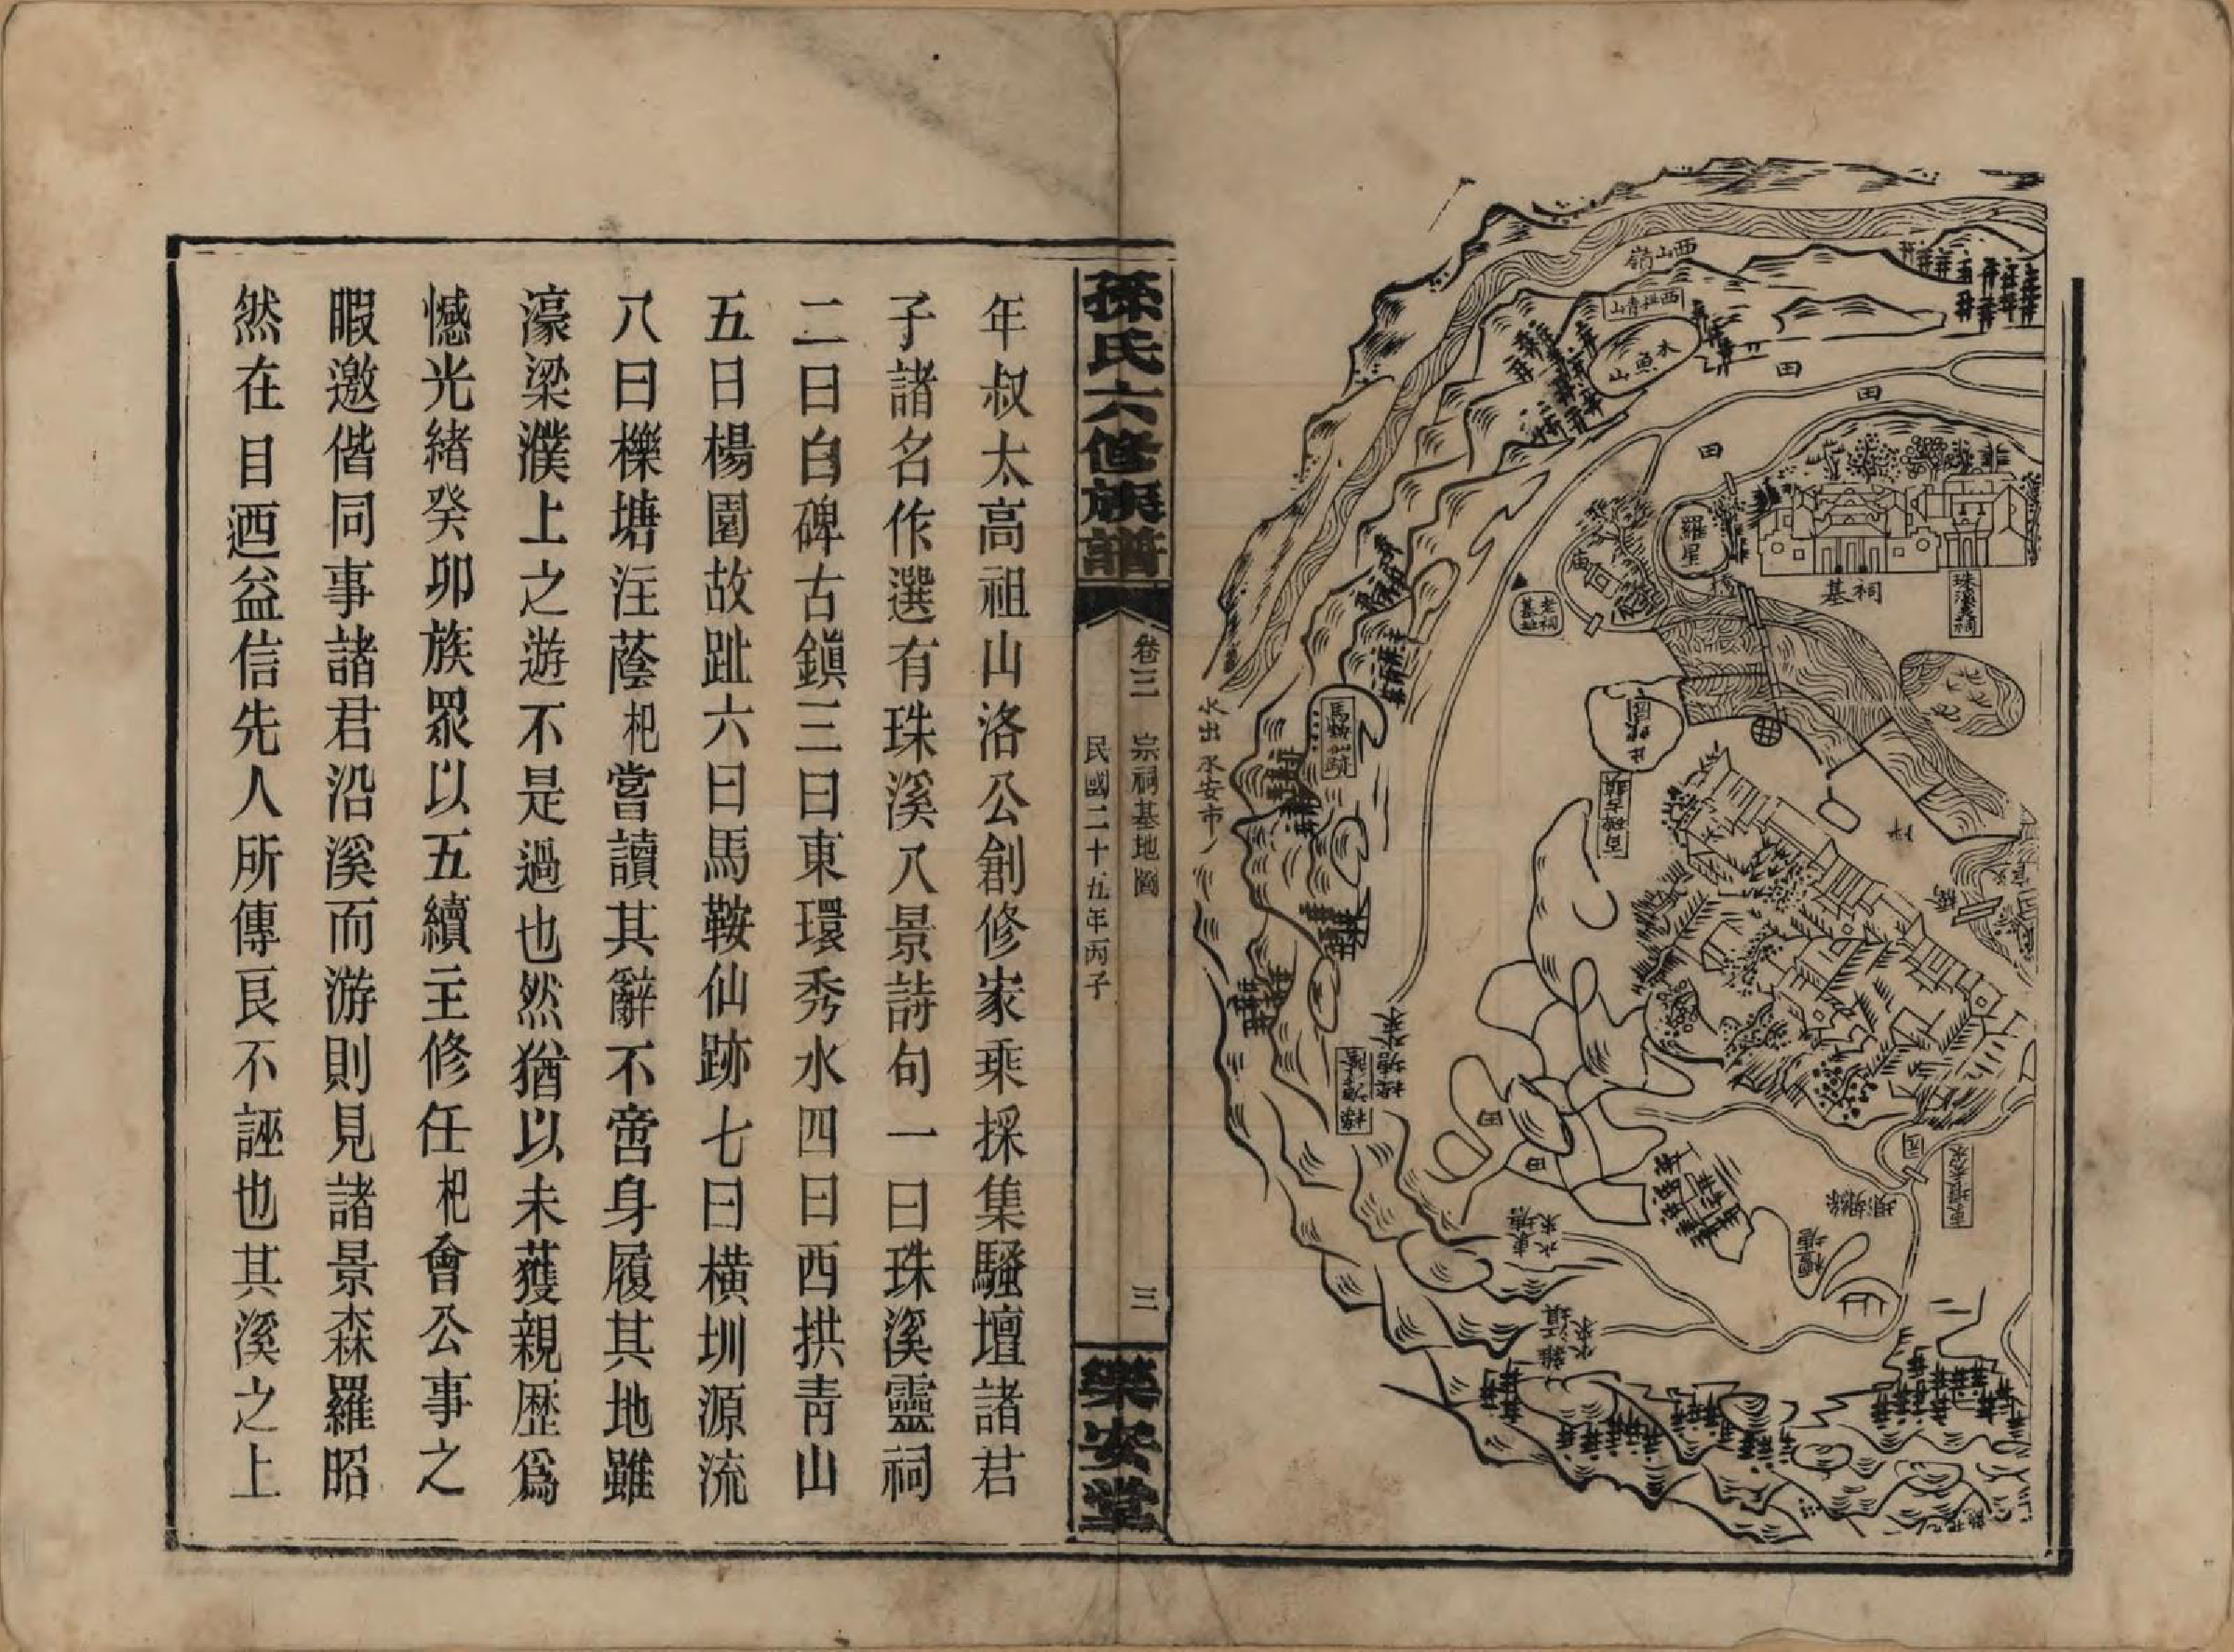 西山嶺
西拱青山
木魚山
田
田
田
羅星
廟
老祠基址
橋
祠基
馬鞍仙跡
水出永安市
田
田
孫氏六修族譜
卷三 宗祠基地圖 三
民國二十五年丙子
樂安堂
年叔太高祖山洛公創修家乘採集騷壇諸君
子諸名作選有珠溪八景詩句一曰珠溪靈祠
二曰白碑古鎮三曰東環秀水四曰西拱青山
五日楊園故趾六曰馬鞍仙跡七曰橫圳源流
八曰櫟塘注蔭杞嘗讀其辭不啻身履其地雖
濠梁濮上之遊不是過也然猶以未獲親歷爲
憾光緒癸卯族眾以五續主修任杞會公事之
暇邀偕同事諸君沿溪而游則見諸景森羅昭
然在目迺益信先人所傳良不誣也其溪之上